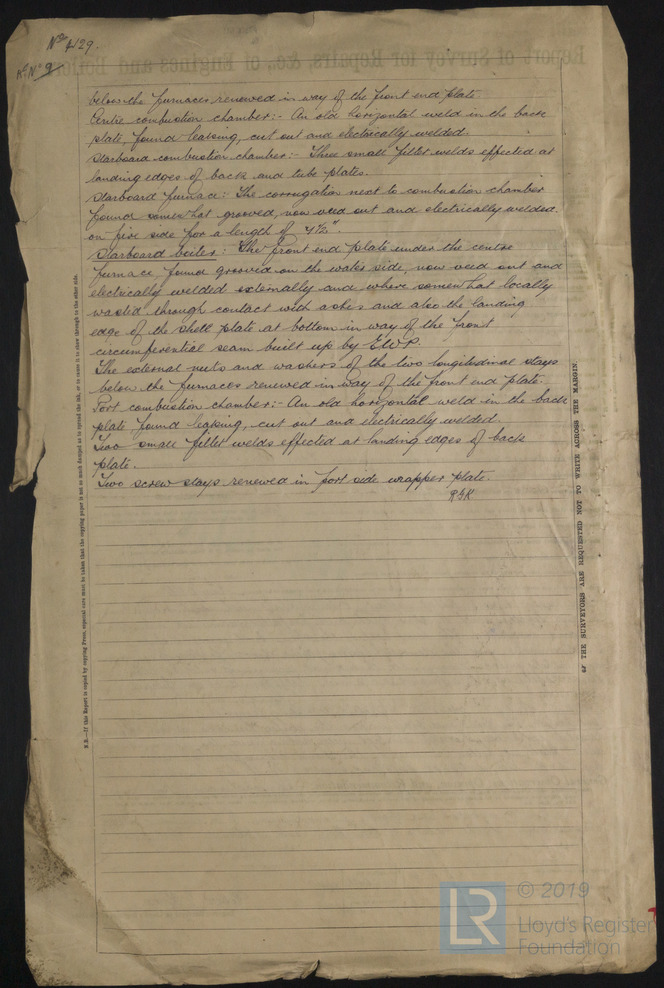 No 4129.
Report of Survey for Repairs, &c., of Engines and Boilers
below the furnaces renewed in way of the front end plate.
Centre combustion chamber:- An old horizontal weld in the back
plate, found leaking, cut out and electrically welded.
Starboard combustion chamber:- Three small fillet welds effected at
landing edges of back and tube plates.
Starboard furnace: The corrugation next to combustion chamber
found somewhat grooved, now veed out and electrically welded
on fire side for a length of 4½".
Starboard boiler: The front end plate under the centre
furnace found grooved on the water side, now veed out and
electrically welded externally and where somewhat locally
wasted through contact with ashes and also the landing
edge of the shell plate at bottom in way of the front
circumferential seam built up by E.W.P.
The external nuts and washers of the two longitudinal stays
below the furnaces renewed in way of the front end plate.
Port combustion chamber:- An old horizontal weld in the back
plate found leaking, cut out and electrically welded.
Two small fillet welds effected at landing edges of back
plate.
Two screw stays renewed in port side wrapper plate.
THE SURVEYORS ARE REQUESTED NOT TO WRITE ACROSS THE MARGIN.
N.B.—If this Report is copied by copying Press, especial care must be taken that the copying paper is not so much damped as to spread the ink, or to cause it to show through to the other side.
LR
© 2019
Lloyd's Register
Foundation